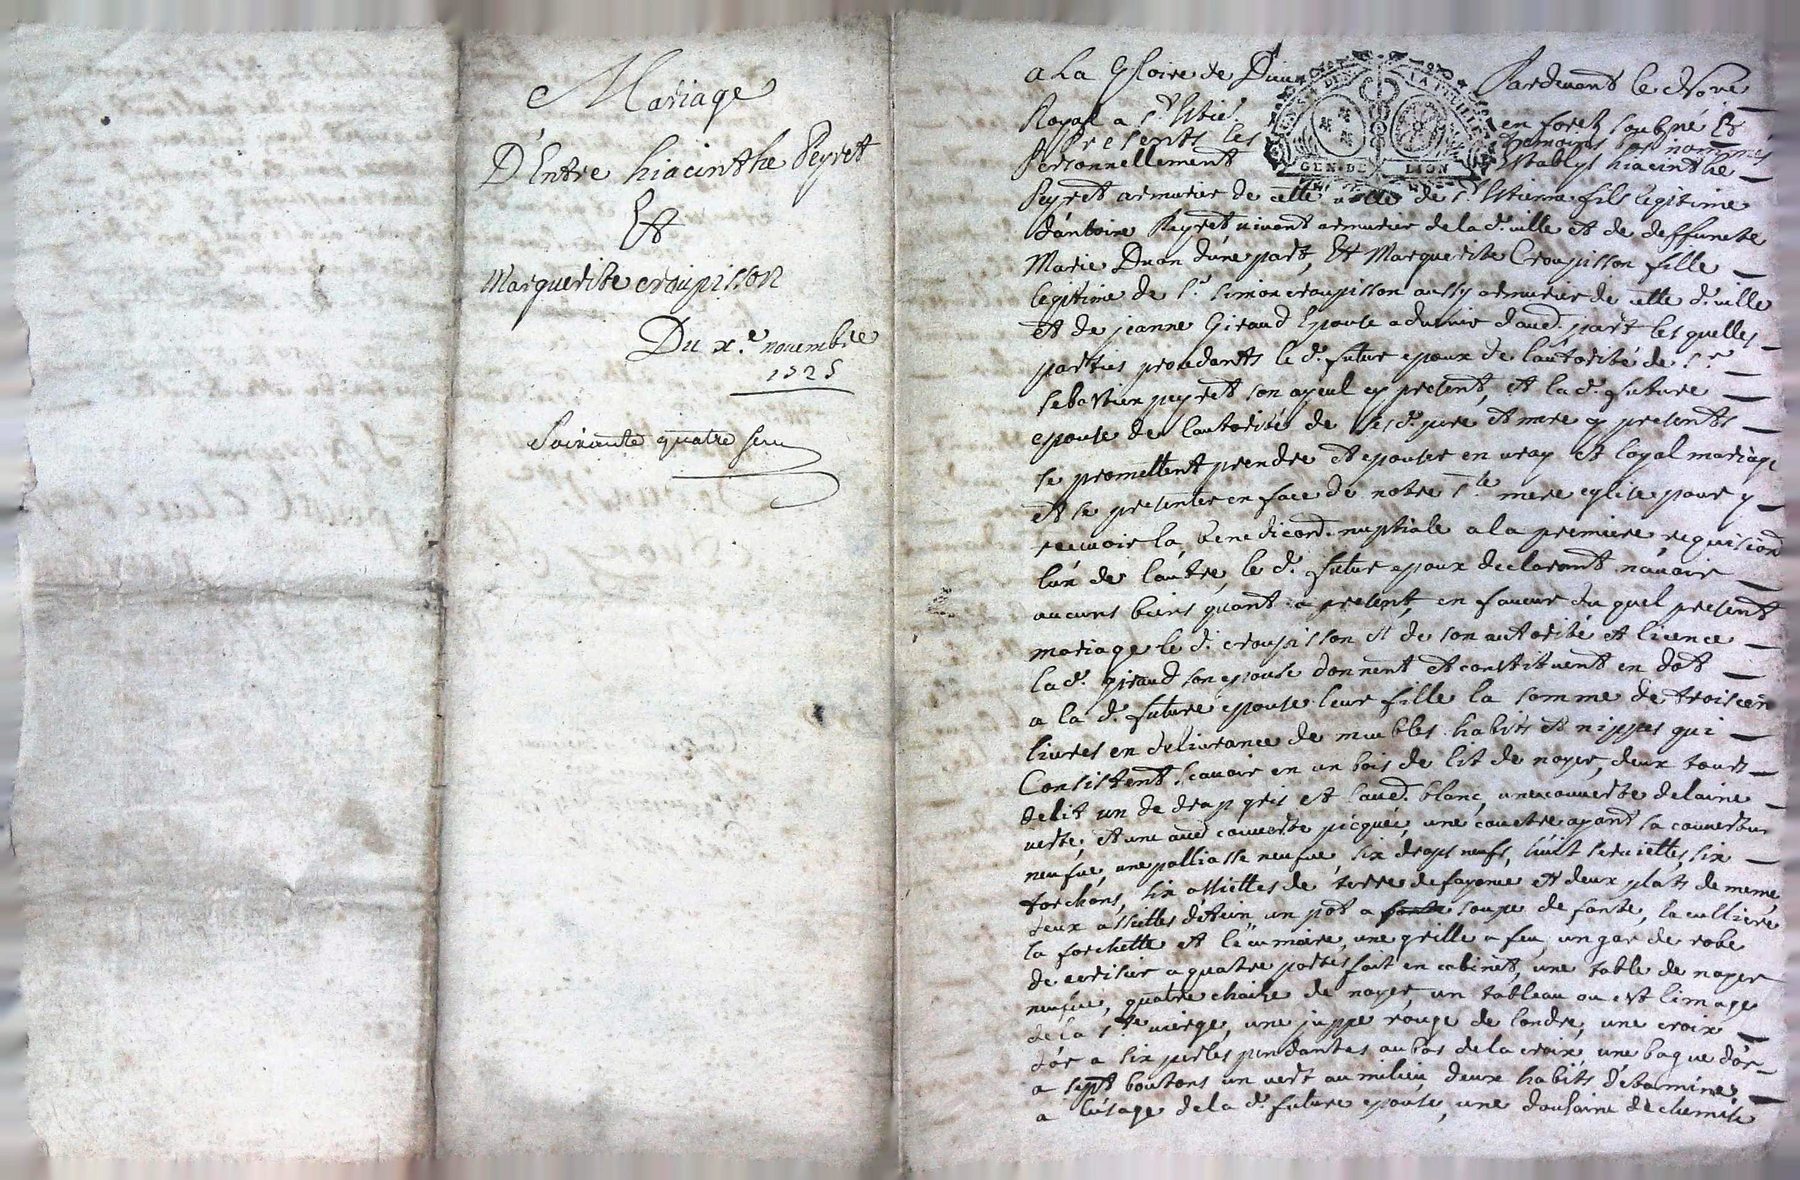 Mariage
D'Entre hiacinthe Peyret
Et
Marguerite croupisson
Du x.e novembre
1725
Soixante quatre
A La Gloire de Dieu Pardevant le No.re
Royal a S.t Estie en forets soubné Et
Presents les temoins bas nommés
Personnellement Establys hiacinthe
Peyret armurier de cette ville de S.t Estienne fils legitime
d'antoine Peyret vivant armurier de la d. ville et de deffuncte
Marie Duon d'une part, Et Marguerite Croupisson fille
legitime de S.r Simon croupisson aussy armurier de cette d. ville
et de jeanne Giraud Epouse advenir d'aud. part lesquelles
parties procedants le d. futur epoux de l'autorité de S.r
sebastien peyret son ayeul cy present, et la d. future
epouse de l'autorité de ses d. pere et mere cy presents
se promettent prendre et epouser en vray et loyal mariage
et se presenter en face de notre S.te mere eglise pour y
recevoir la benedicon nuptiale a la premiere requision
l'un de l'autre, le d. futur epoux declarant n'avoir
aucuns biens quant a present, en faveur du quel present
mariage le d. croupisson et de son autorité et licence
la d. giraud son epouse donnent et constituent en dot
a la d. future epouse leur fille la somme de trois cen
livres en delivrance de meubles habits et nippes qui
Consistent scavoir en un bois de lit de noyer, deux tours
de lit un de drap gris et l'aud. blanc, une couverte de laine
verte, et une aud couverte picquee, une couetre ayant sa couverture
neufve, une palliasse neufve six draps neufs, huit serviettes, six
torchons, six assiettes de terre de fayance et deux plats de meme
deux assiettes d'etein un pot a soupe de fonte, la culliere
la forchette et l'ecumoire, une grille a feu, un gar de robe
de cerisier a quatre portes fait en cabinet, une table de noyer
neufve, quatre chaise de noyer, un tableau ou est limage
de la S.te vierge, une juppe rouge de londre, une croix
d'or a six perles pendantes au bas de la croix, une bague d'or
a sept boutons un vert au milieu, deux habits d'etamine
a l'usage de la d. future epouse, une dousaine de chemise